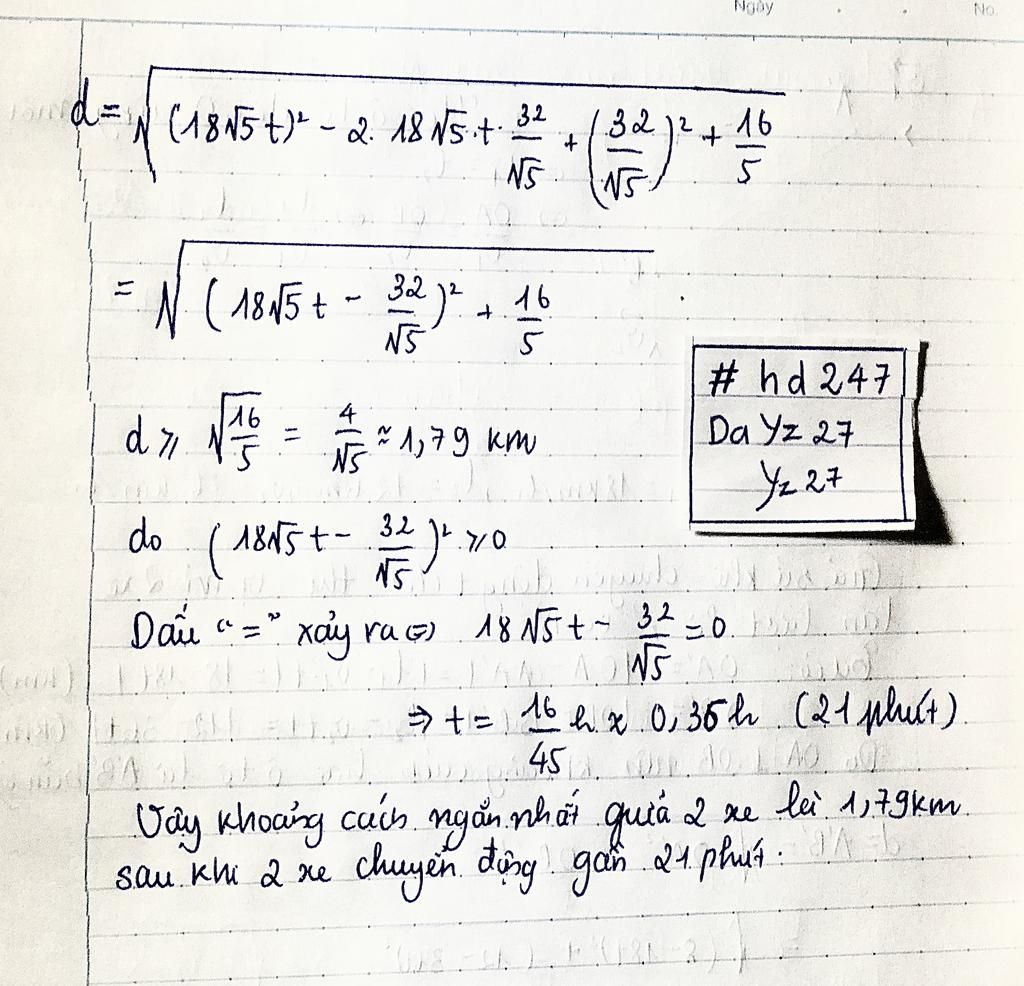 Ngày No.
d = √((18√5t)² - 2. 18√5.t. 32/√5 + (32/√5)² + 16/5)
= √((18√5t - 32/√5)² + 16/5)
d ≥ √(16/5) = 4/√5 ≈ 1,79 km
do (18√5t - 32/√5)² ≥ 0
Dấu "=" xảy ra (=) 18√5t - 32/√5 = 0
⇒ t = 16/45 h ≈ 0,35h (21 phút)
Vậy khoảng cách ngắn nhất giữa 2 xe là 1,79km
sau khi 2 xe chuyển động gần 21 phút.
# hd 247
Da Yz 27
Yz 27